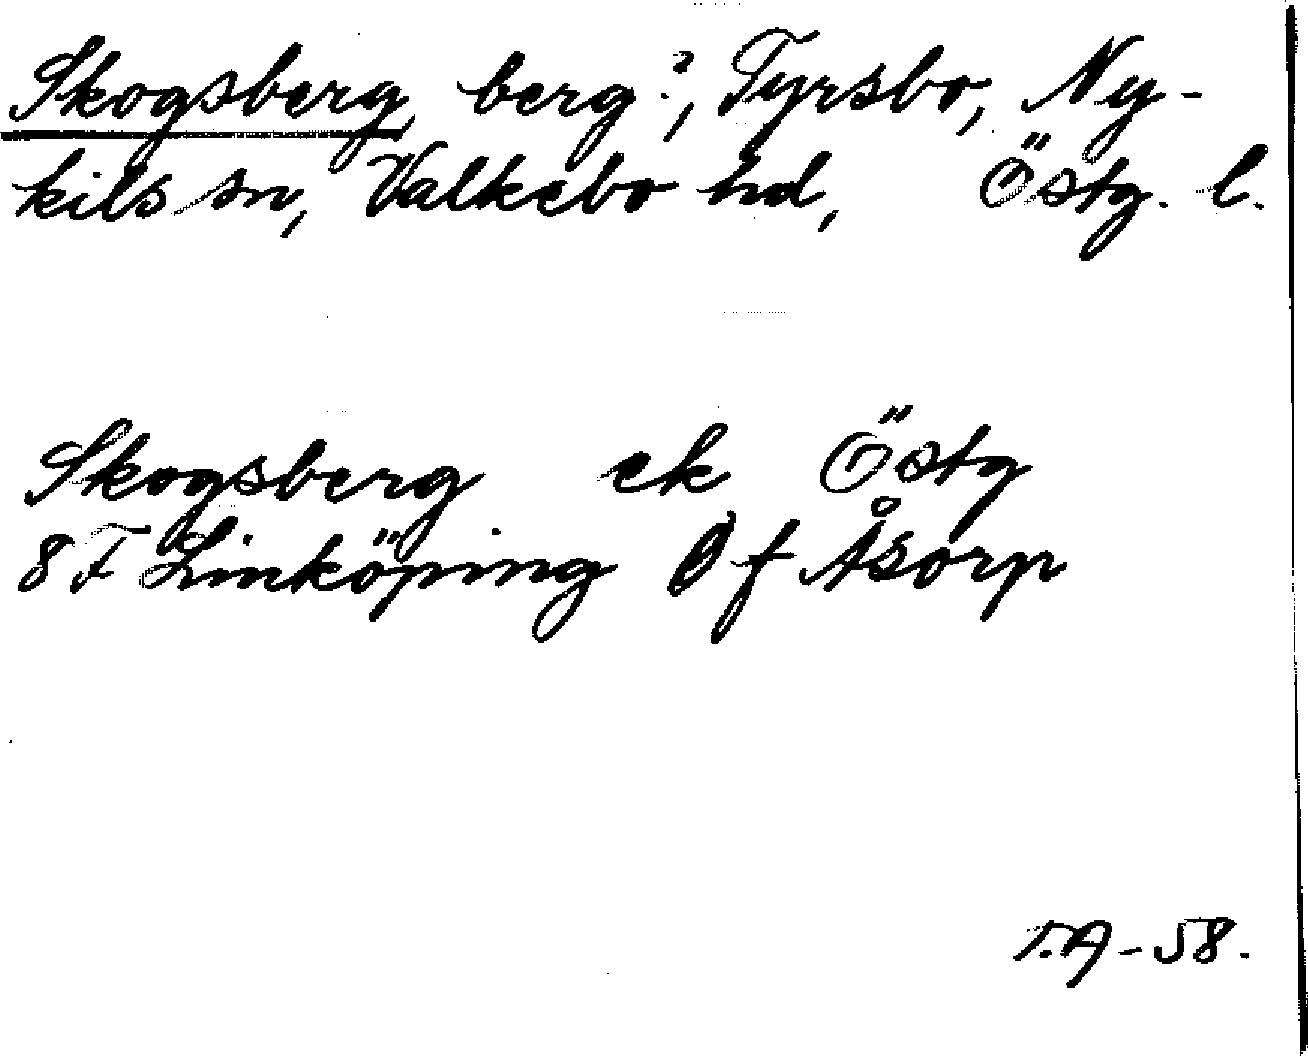 Skogsberg, berg?, Tyrsbo, Ny-
kils sn, Valkebo hd, Östg. l.
Skogsberg ek Östg
8 F Linköping Ö f Åsorp
T.A-58.